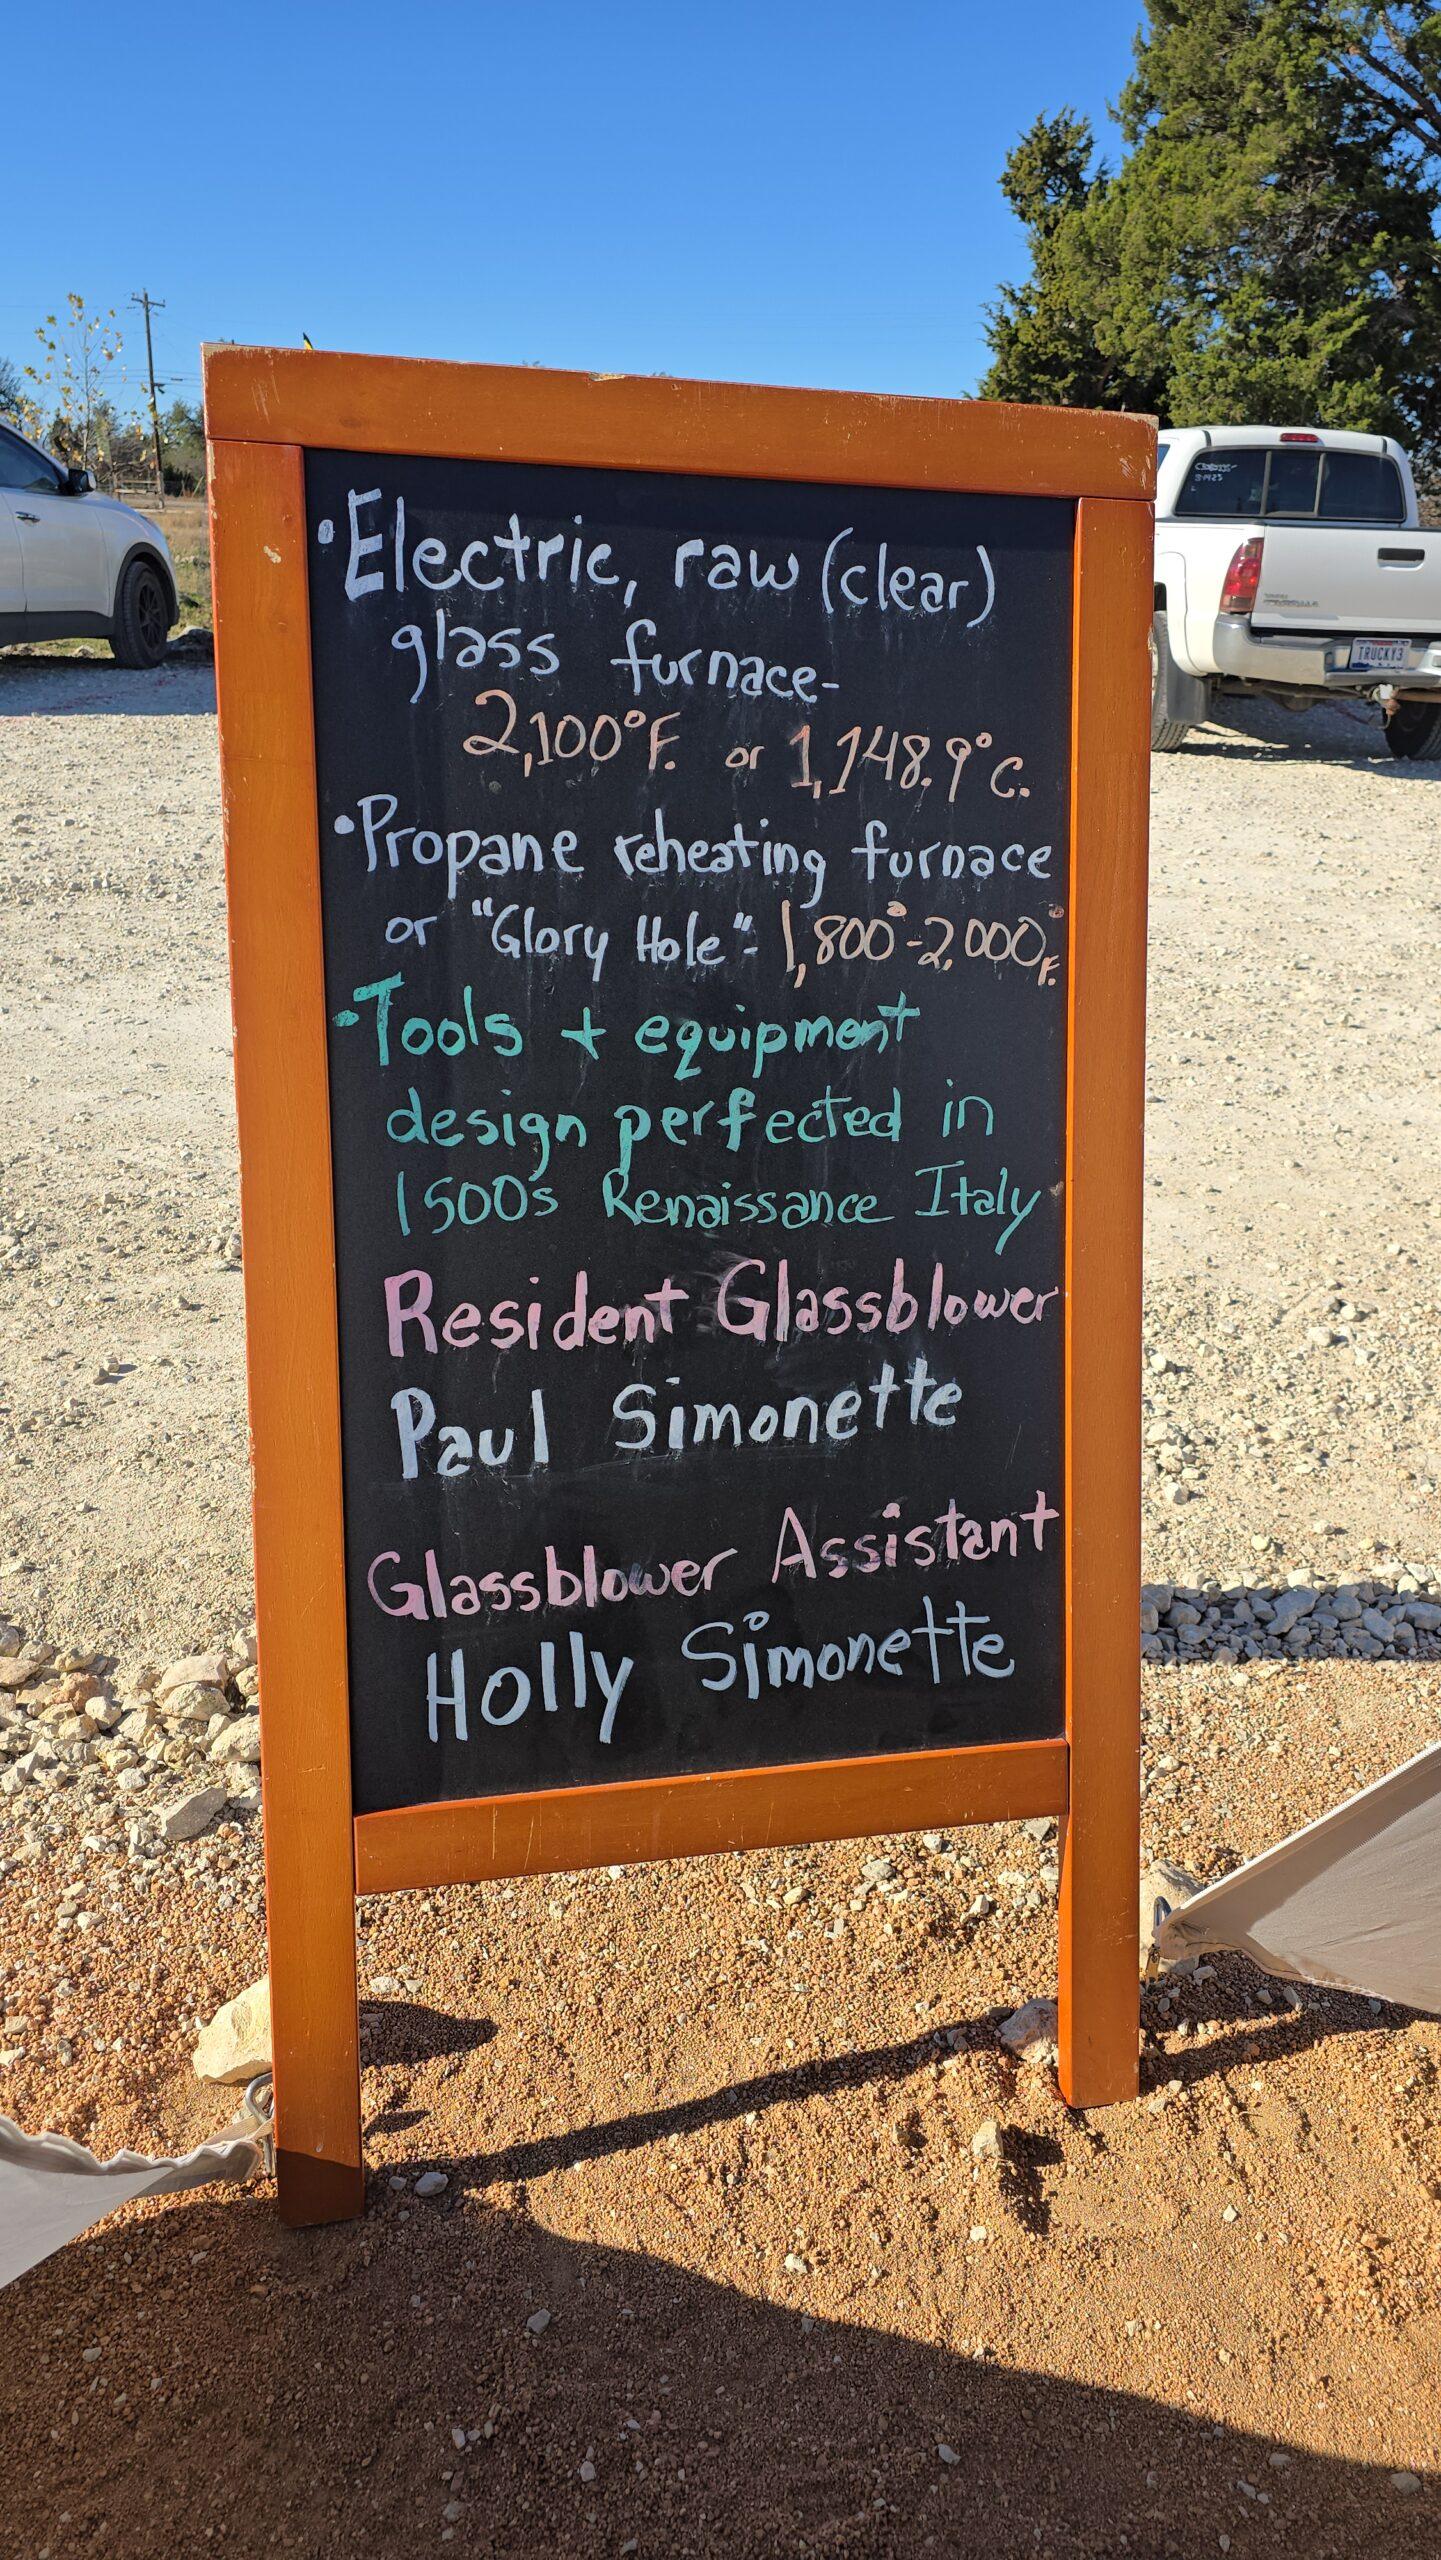 •Electric, raw (clear)
glass furnace-
2,100°F. or 1,148.9°C.
•Propane reheating furnace
or "Glory Hole"- 1,800°-2,000°F.
•Tools + equipment
design perfected in
1500s Renaissance Italy
Resident Glassblower
Paul Simonette
Glassblower Assistant
Holly Simonette
TRUCKY3